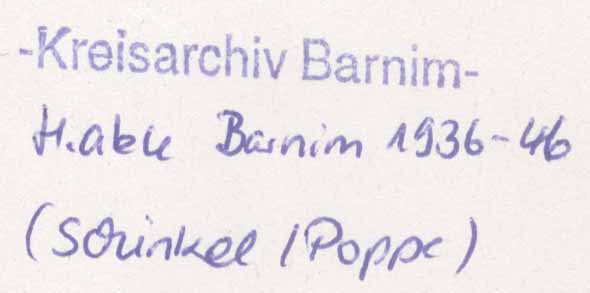 -Kreisarchiv Barnim-
H.akte Barnim 1936-46
(Schinkel / Poppe)